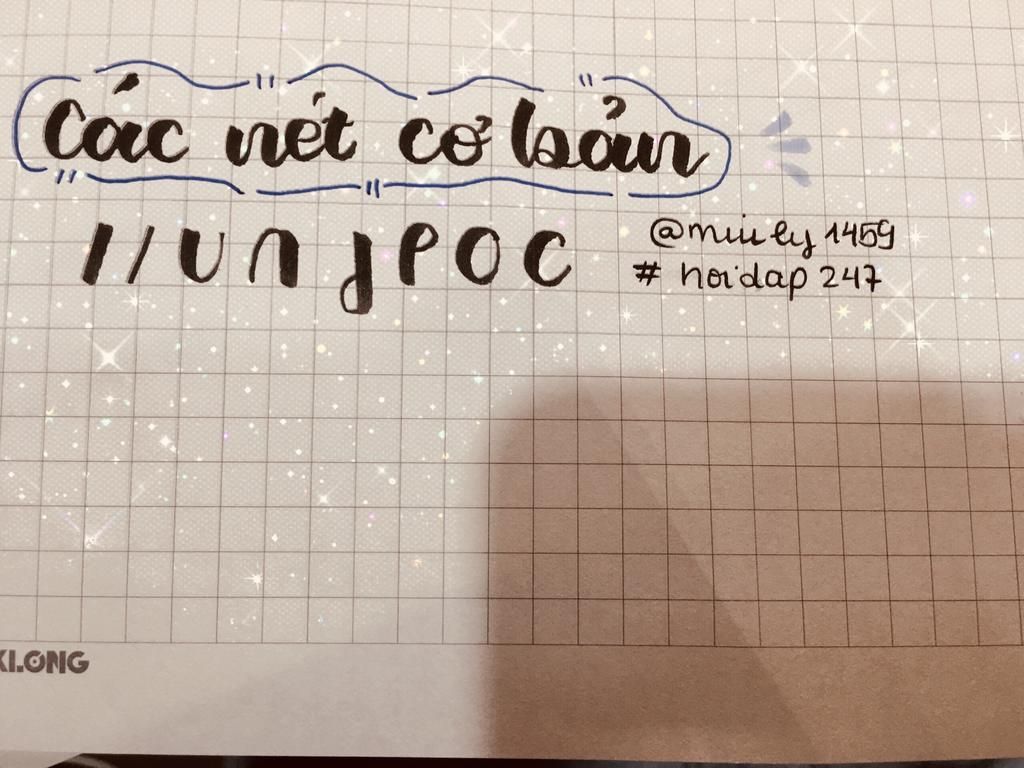 Các nét cơ bản
I / U n J P O C
@miuly1459
# hoidap 247
KLONG